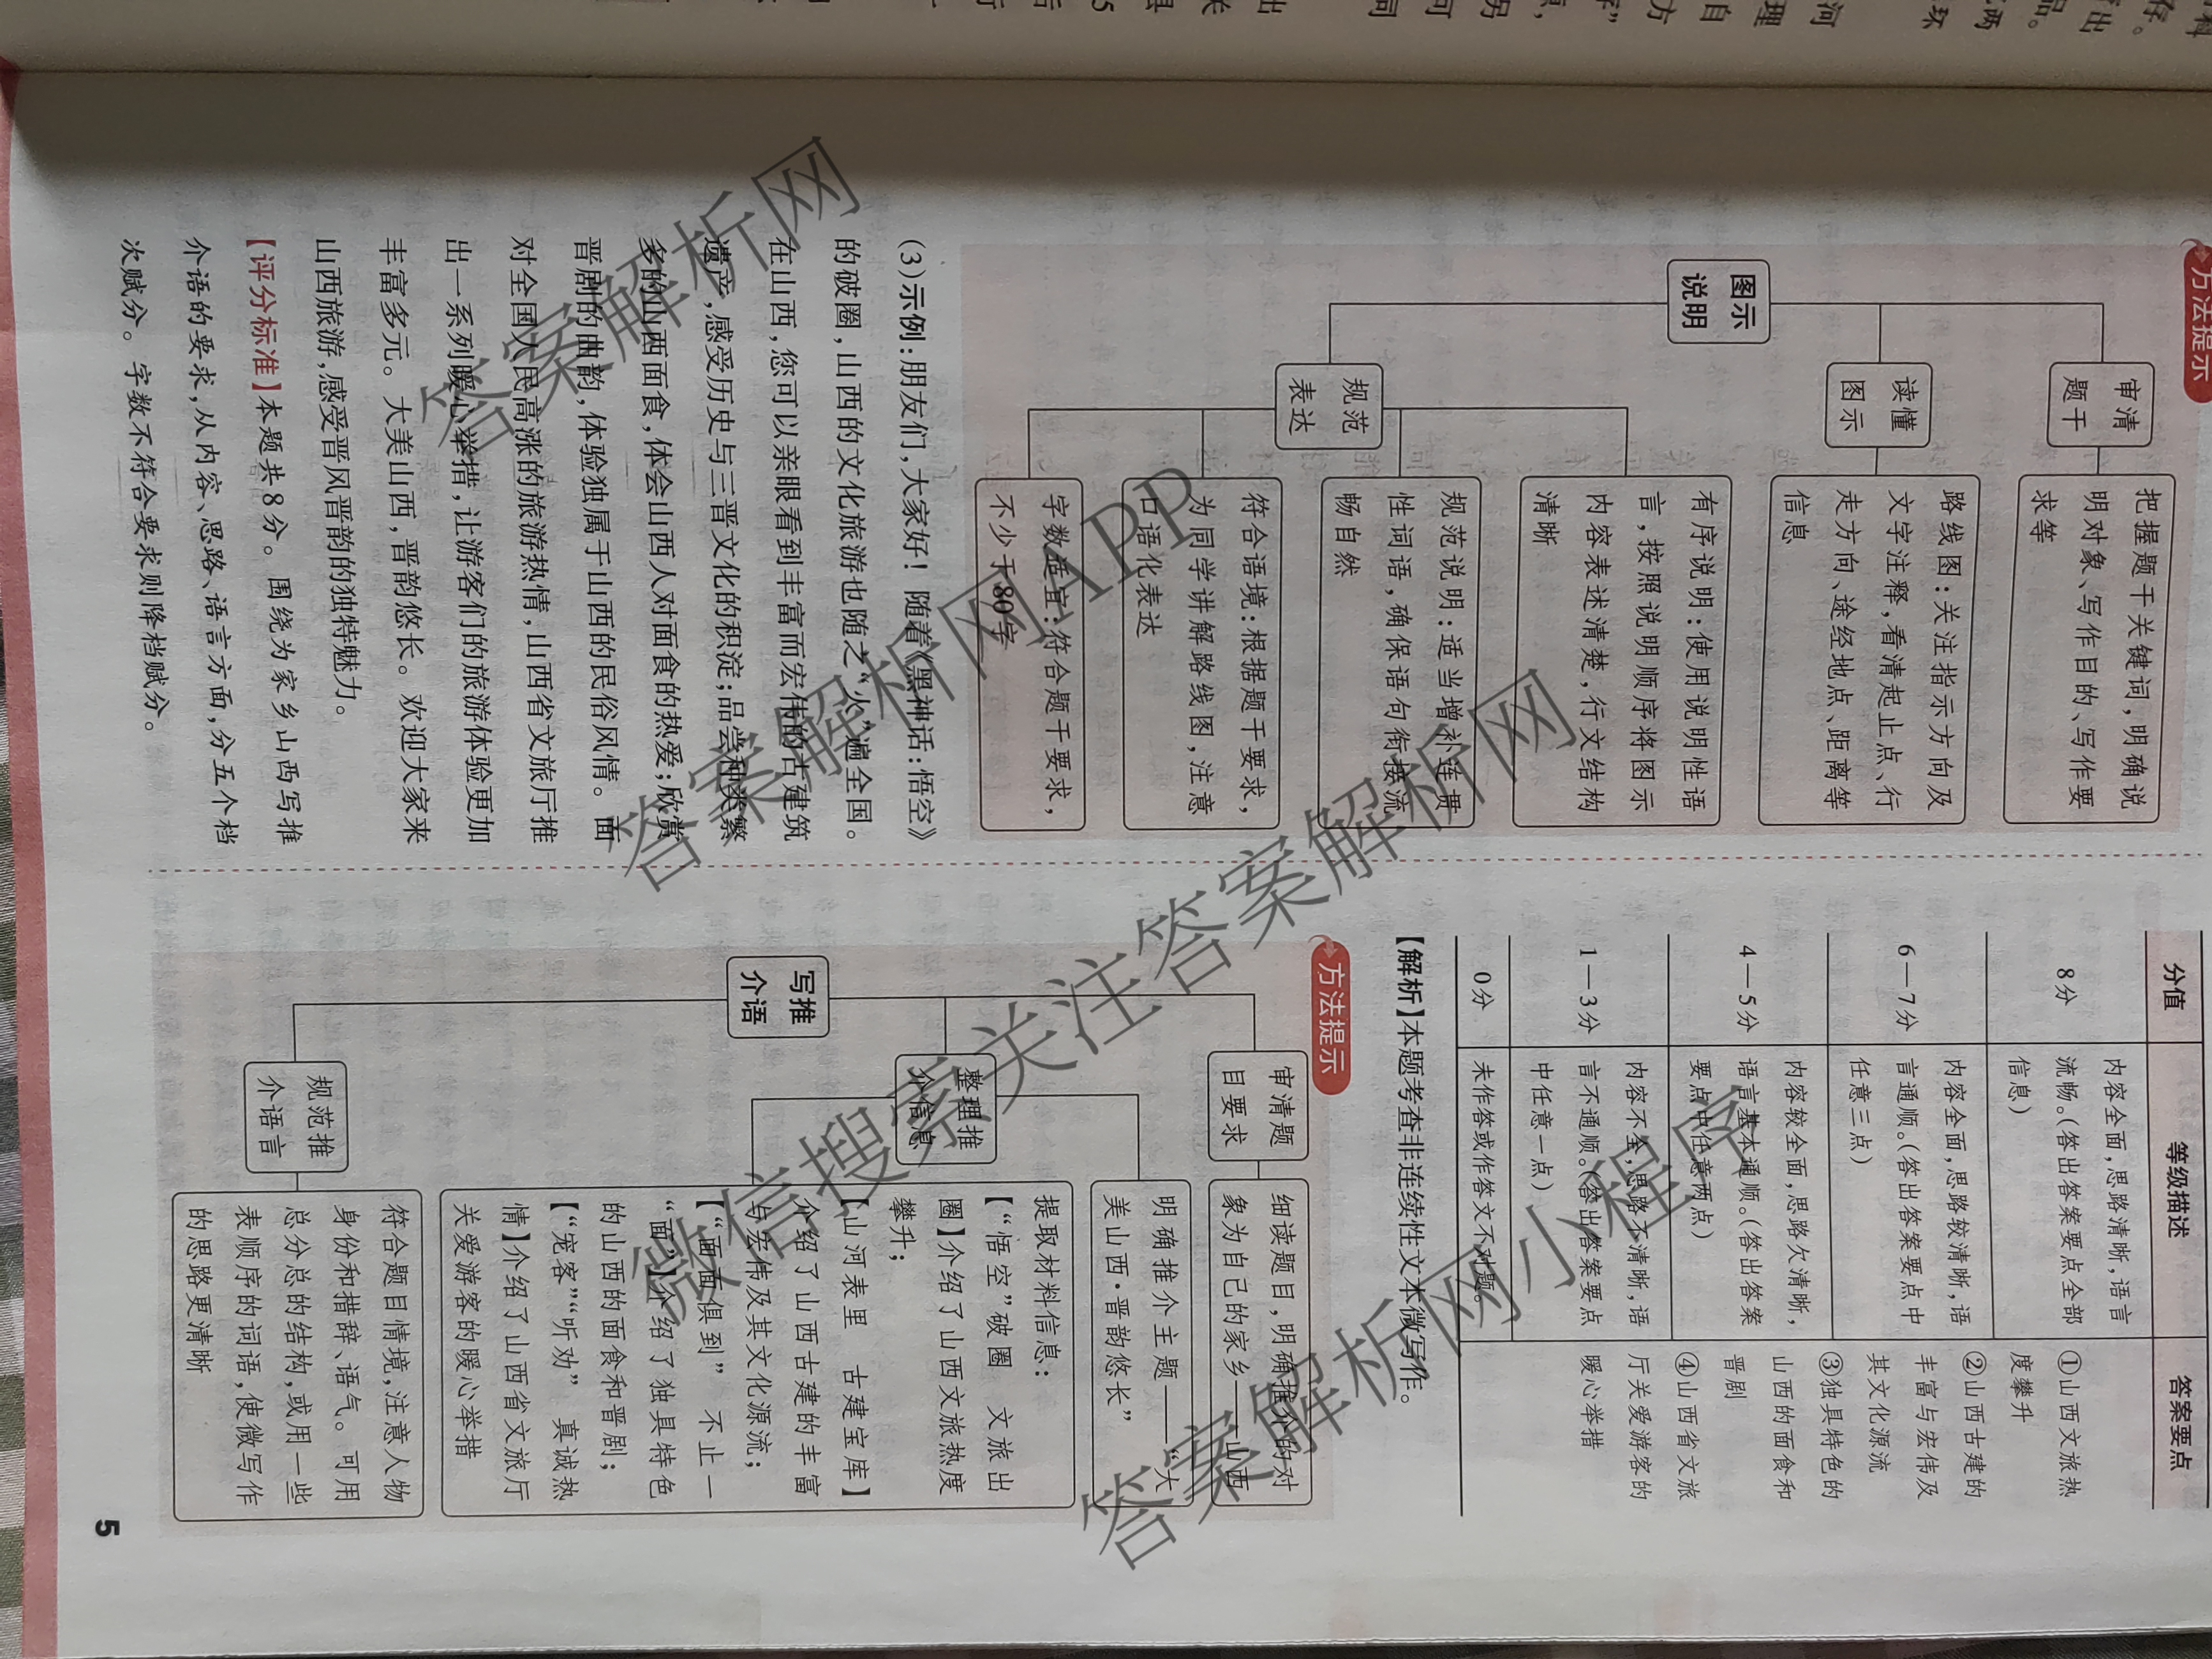 方法提示
图示
说明
审清
题干
把握题干关键词，明确说
明对象、写作目的、写作要
求等
读懂
图示
路线图：关注指示方向及
文字注释，看清起止点、行
走方向、途经地点、距离等
信息
规范
表达
有序说明：使用说明性语
言，按照说明顺序将图示
内容表述清楚，行文结构
清晰
规范说明：适当增补连贯
性词语，确保语句衔接流
畅自然
符合语境：根据题干要求，
为同学讲解路线图，注意
口语化表达
字数适宜：符合题干要求，
不少于80字
(3)示例：朋友们，大家好！随着《黑神话：悟空》
的破圈，山西的文化旅游也随之“火”遍全国。
在山西，您可以亲眼看到丰富而宏伟的古建筑
遗产，感受历史与三晋文化的积淀；品尝种类繁
多的山西面食，体会山西人对面食的热爱；欣赏
晋剧的曲韵，体验独属于山西的民俗风情。面
对全国人民高涨的旅游热情，山西省文旅厅推
出一系列暖心举措，让游客们的旅游体验更加
丰富多元。大美山西，晋韵悠长。欢迎大家来
山西旅游，感受晋风晋韵的独特魅力。
【评分标准】本题共8分。围绕为家乡山西写推
介语的要求，从内容、思路、语言方面，分五个档
次赋分。字数不符合要求则降档赋分。
分值 等级描述 答案要点
8分
内容全面，思路清晰，语言
流畅。（答出答案要点全部
信息）
6—7分
内容全面，思路较清晰，语
言通顺。（答出答案要点中
任意三点）
4—5分
内容较全面，思路欠清晰，
语言基本通顺。（答出答案
要点中任意两点）
1—3分
内容不全，思路不清晰，语
言不通顺。（答出答案要点
中任意一点）
0分
未作答或作答文不对题。
①山西文旅热
度攀升
②山西古建的
丰富与宏伟及
其文化源流
③独具特色的
山西的面食和
晋剧
④山西省文旅
厅关爱游客的
暖心举措
【解析】本题考查非连续性文本微写作。
方法提示
写推
介语
审清题
目要求
细读题目，明确推介的对
象为自己的家乡——山西
明确推介主题——“大
美山西·晋韵悠长”
整理推
介信息
提取材料信息：
【“悟空”破圈 文旅出
圈】介绍了山西文旅热度
攀升；
【山河表里 古建宝库】
介绍了山西古建的丰富
与宏伟及其文化源流；
【“面面俱到” 不止一
“面”】介绍了独具特色
的山西的面食和晋剧；
【“宠客”“听劝” 真诚热
情】介绍了山西省文旅厅
关爱游客的暖心举措
规范推
介语言
符合题目情境，注意人物
身份和措辞、语气。可用
总分总的结构，或用一些
表顺序的词语，使微写作
的思路更清晰
5
答案解析网
答案解析网APP
微信搜索关注答案解析网
答案解析网小程序